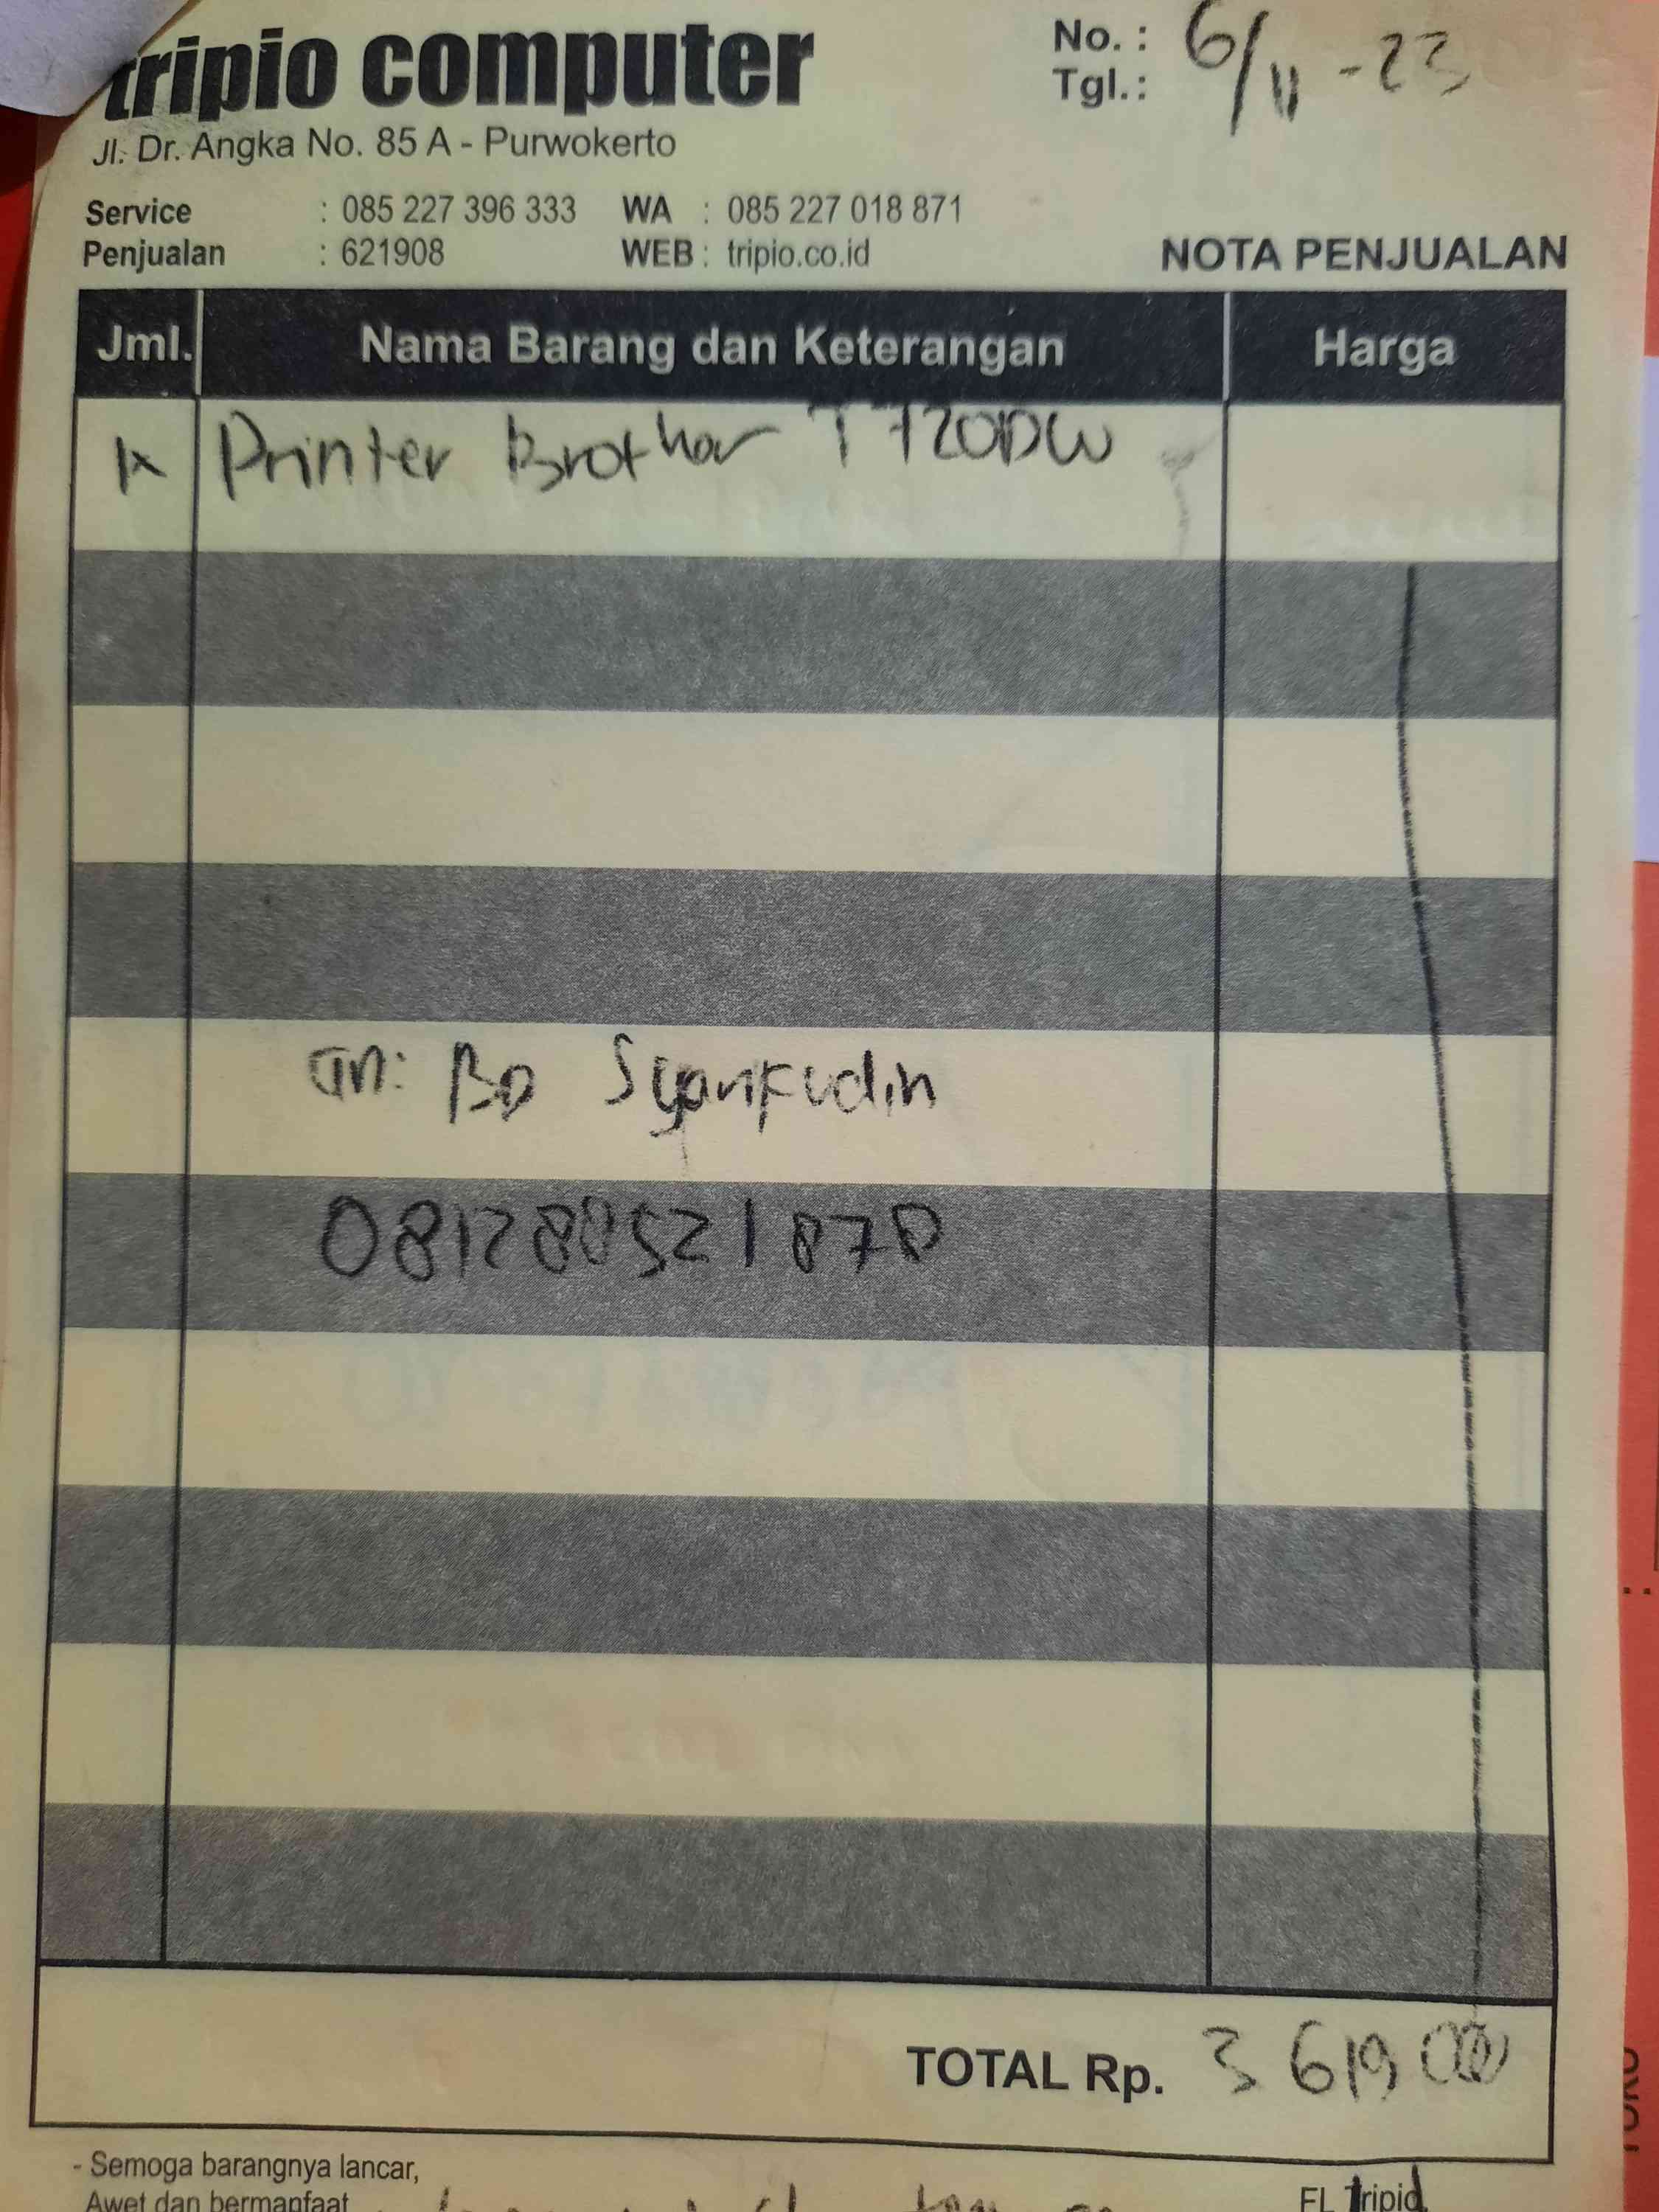 tripio computer
No. :
Tgl. : 6/11 - 23
Jl. Dr. Angka No. 85 A - Purwokerto
Service : 085 227 396 333 WA : 085 227 018 871
Penjualan : 621908 WEB : tripio.co.id
NOTA PENJUALAN
Jml. Nama Barang dan Keterangan Harga
1x Printer Brother T720DW
an: Syarifudin
TOTAL Rp. 3 619 000
- Semoga barangnya lancar,
Awet dan bermanfaat
FL Tripio